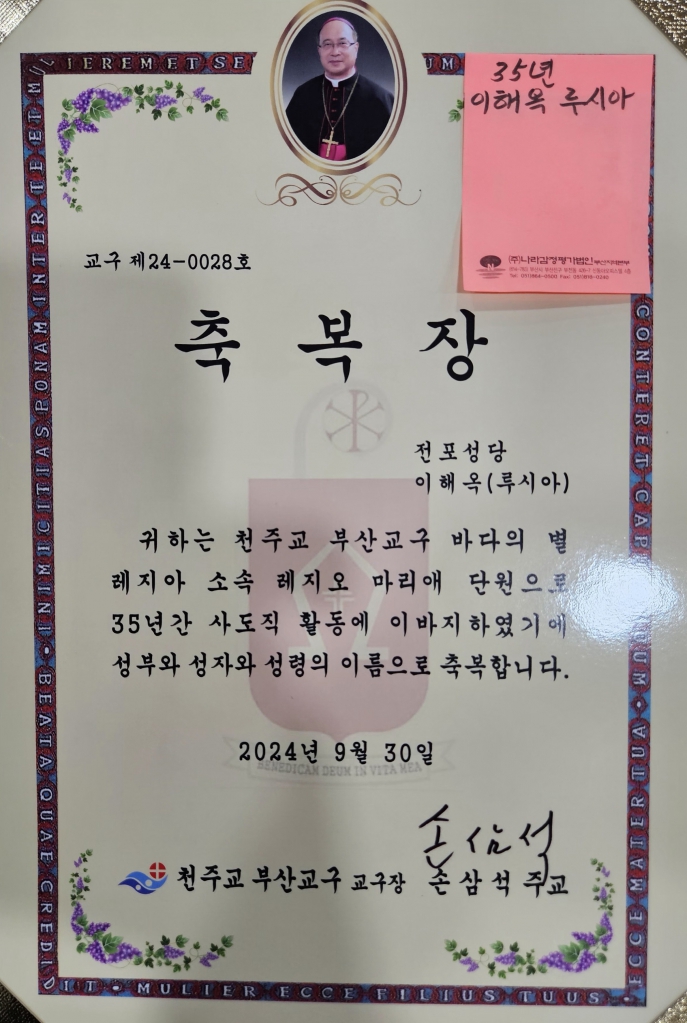 IEREM ET SE
UM
35년
이해옥 루시아
(주)나라감정평가법인 부산지역본부
교구 제24-0028호
축 복 장
전포성당
이해옥(루시아)
귀하는 천주교 부산교구 바다의 별
레지아 소속 레지오 마리애 단원으로
35년간 사도직 활동에 이바지하였기에
성부와 성자와 성령의 이름으로 축복합니다.
2024년 9월 30일
BENEDICAM DEUM IN VITA MEA
손삼석
천주교 부산교구 교구장 손삼석 주교
INIMICITIAS PONAM INTER TE ET MU
BEATA QUAE CREDID
IT • MULIER ECCE FILIUS TUUS •
ECCE MATER TUA •
CONTERET CAP
UUM